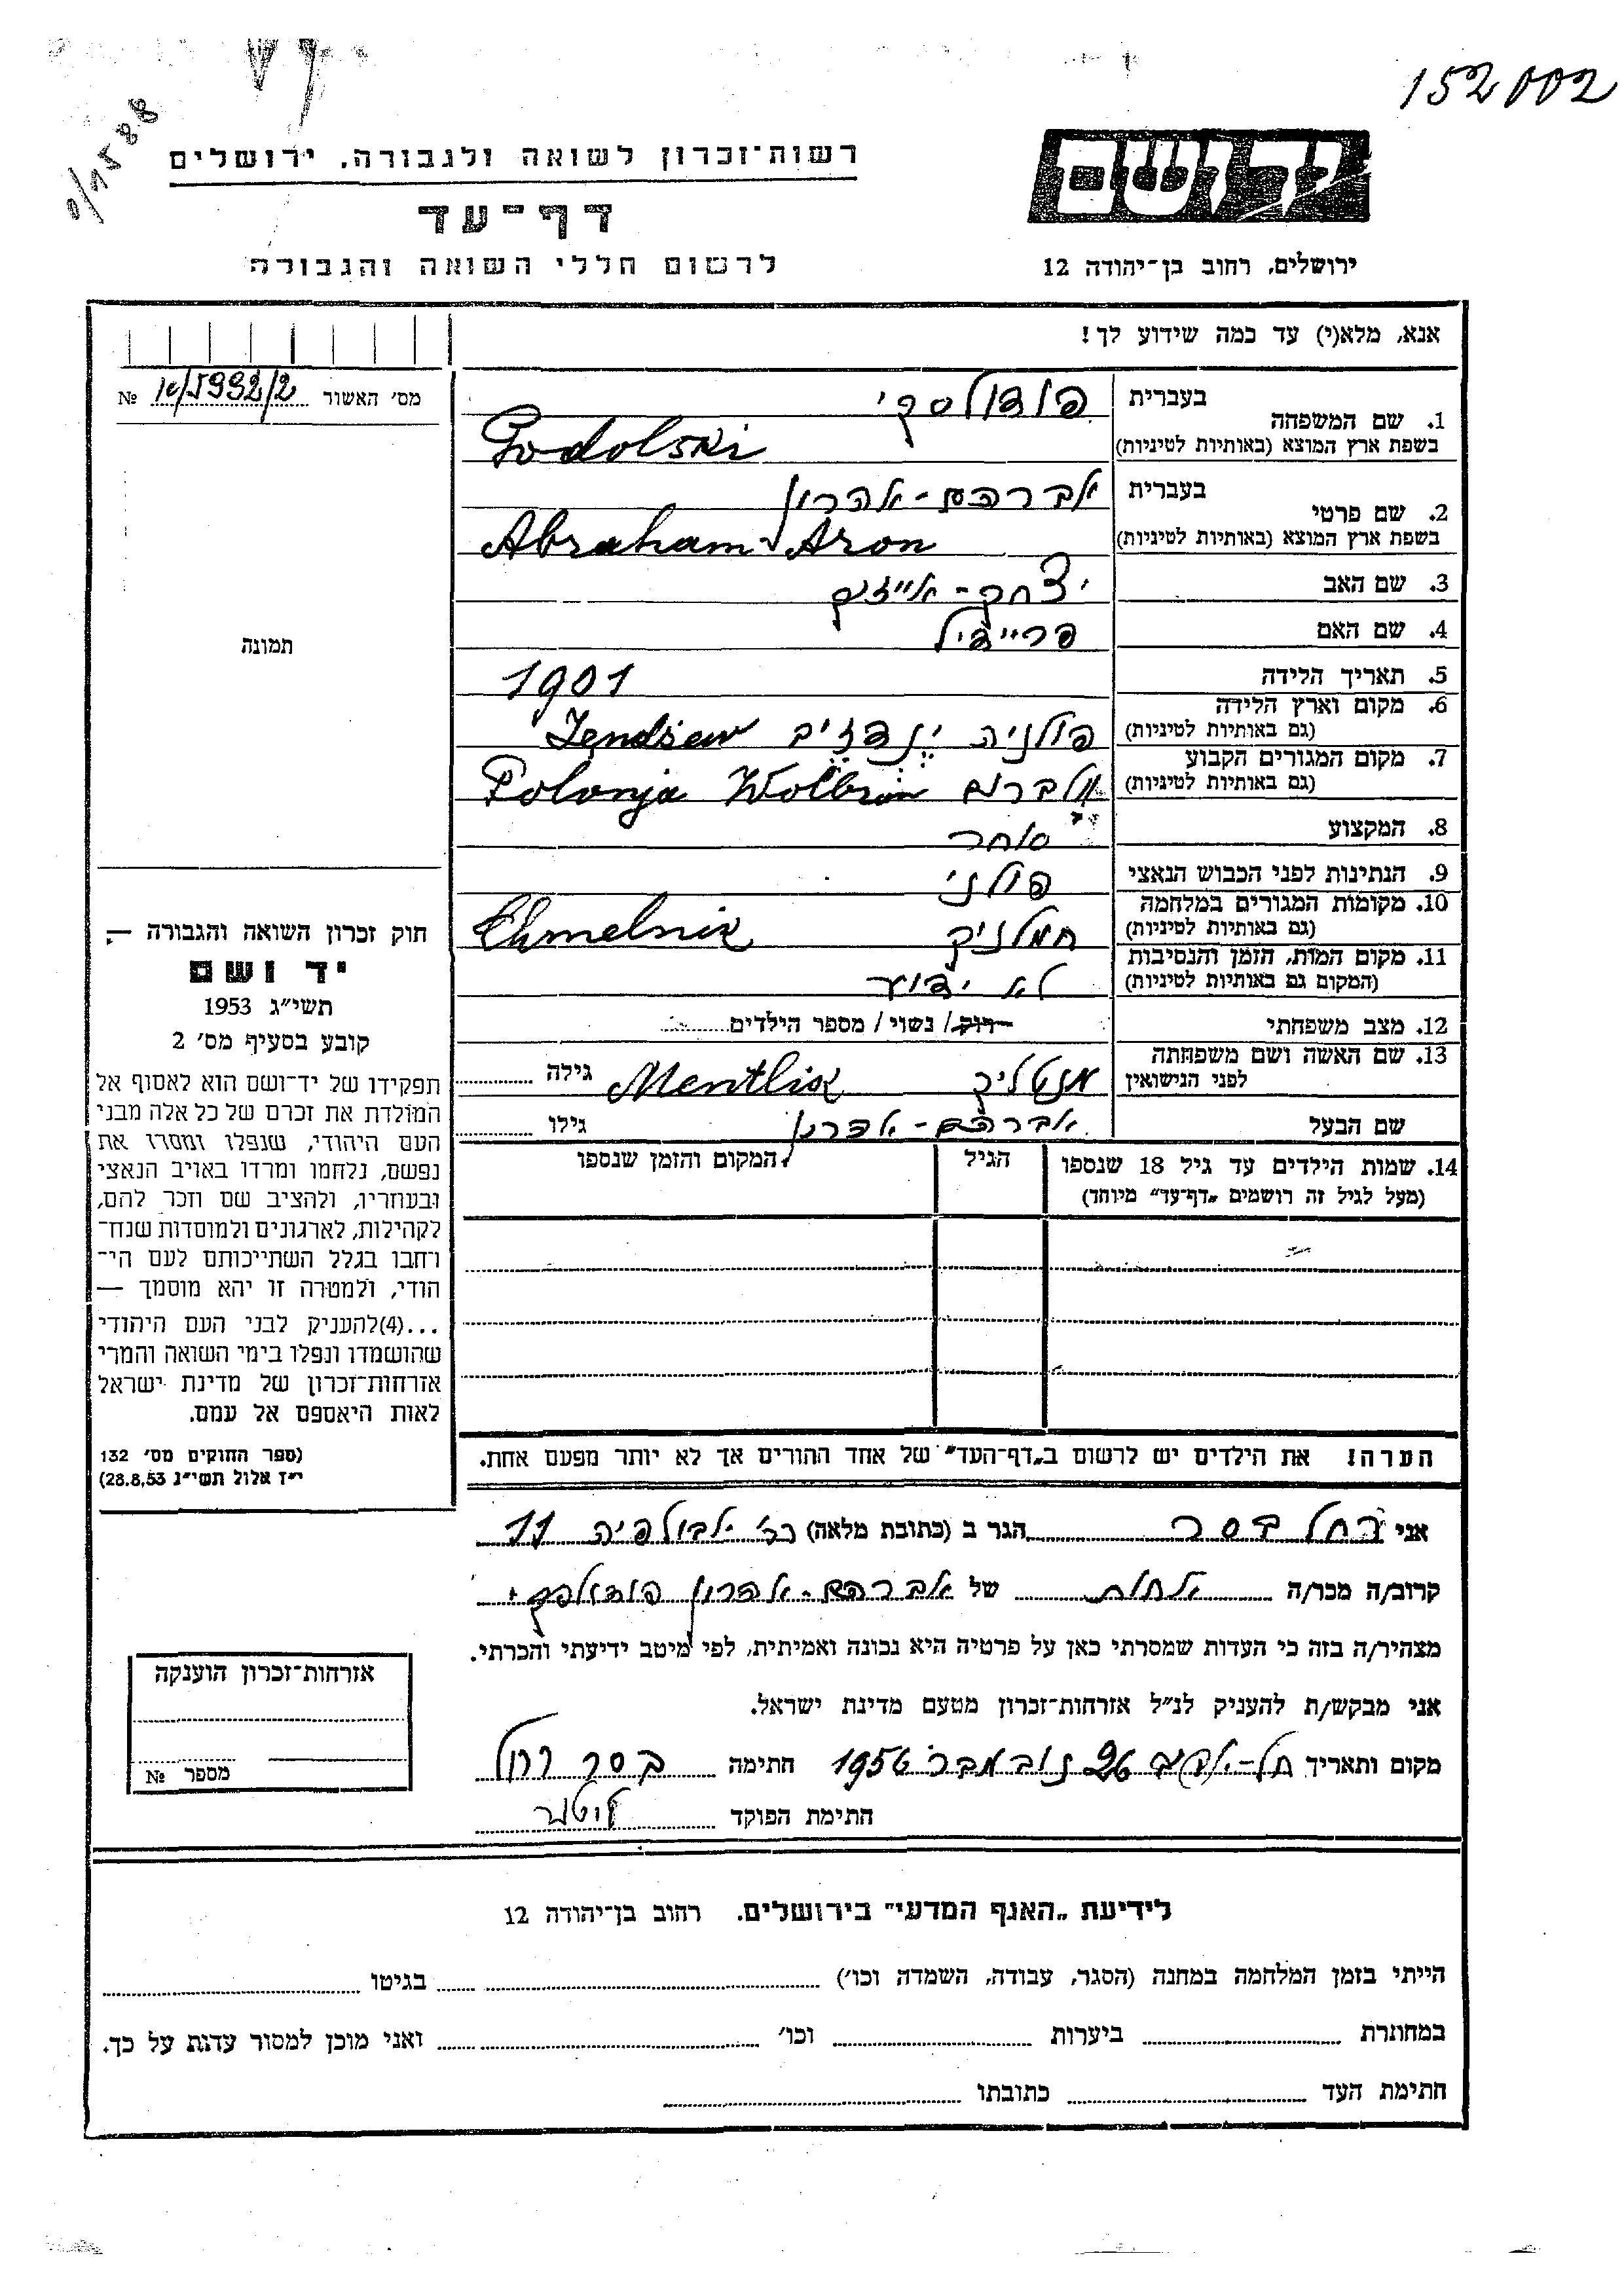 152002
0/1588
רשות־זכרון לשואה ולגבורה, ירושלים
ידושם
דף־עד
לרשום חללי השואה והגבורה
ירושלים, רחוב בן־יהודה 12
אנא, מלא(י) עד כמה שידוע לך!
מס׳ האשור № 5992/2
1. שם המשפחה
בעברית פודולסקי
בשפת ארץ המוצא (באותיות לטיניות) Podolski
2. שם פרטי
בעברית אברהם-אהרון
בשפת ארץ המוצא (באותיות לטיניות) Abraham-Aron
3. שם האב יצחק-אייזיק
4. שם האם פריידיל
5. תאריך הלידה 1901
6. מקום וארץ הלידה
(גם באותיות לטיניות) פולניה ינדזיב Jendśew
7. מקום המגורים הקבוע
(גם באותיות לטיניות) וולברום Wolbrom Polonja
8. המקצוע סוחר
9. הנתינות לפני הכבוש הנאצי פולני
10. מקומות המגורים במלחמה
(גם באותיות לטיניות) חמלניק Chmelnik
11. מקום המות, הזמן והנסיבות
(המקום גם באותיות לטיניות) לא ידוע
12. מצב משפחתי רוק/ נשוי/ מספר הילדים
13. שם האשה ושם משפחתה
לפני הנישואין מנטליק Mentlik גילה
שם הבעל אברהם-אהרון גילו
14. שמות הילדים עד גיל 18 שנספו
(מעל לגיל זה רושמים „דף־עד״ מיוחד)
הגיל
המקום והזמן שנספו
הערה! את הילדים יש לרשום ב„דף־העד״ של אחד ההורים אך לא יותר מפעם אחת.
תמונה
חוק זכרון השואה והגבורה —
יד ושם
תשי״ג 1953
קובע בסעיף מס׳ 2
תפקידו של יד־ושם הוא לאסוף אל
המולדת את זכרם של כל אלה מבני
העם היהודי, שנפלו ומסרו את
נפשם, נלחמו ומרדו באויב הנאצי
ובעוזריו, ולהציב שם וזכר להם,
לקהילות, לארגונים ולמוסדות שנח־
רחבו בגלל השתייכותם לעם הי־
הודי, ולמטרה זו יהא מוסמך —
...(4)להעניק לבני העם היהודי
שהושמדו ונפלו בימי השואה והמרי
אזרחות־זכרון של מדינת ישראל
לאות היאספם אל עמם.
(ספר החוקים מס׳ 132
י״ז אלול תשי״ג 28.8,53)
אני רחל בסר הגר ב (כתובת מלאה) 11
קרוב/ה מכר/ה אחות של אברהם-אהרון פודולסקי
מצהיר/ה בזה כי העדות שמסרתי כאן על פרטיה היא נכונה ואמיתית, לפי מיטב ידיעתי והכרתי.
אני מבקש/ת להעניק לנ״ל אזרחות־זכרון מטעם מדינת ישראל.
מקום ותאריך תל-אביב 26 נובמבר 1956 חתימה בסר רחל
חתימת הפוקד
אזרחות־זכרון הוענקה
מספר №
לידיעת „האגף המדעי״ בירושלים. רחוב בן־יהודה 12
הייתי בזמן המלחמה במחנה (הסגר, עבודה, השמדה וכו׳) בגיטו
במחתרת ביערות וכו׳ ואני מוכן למסור עדות על כך.
חתימת העד כתובתו